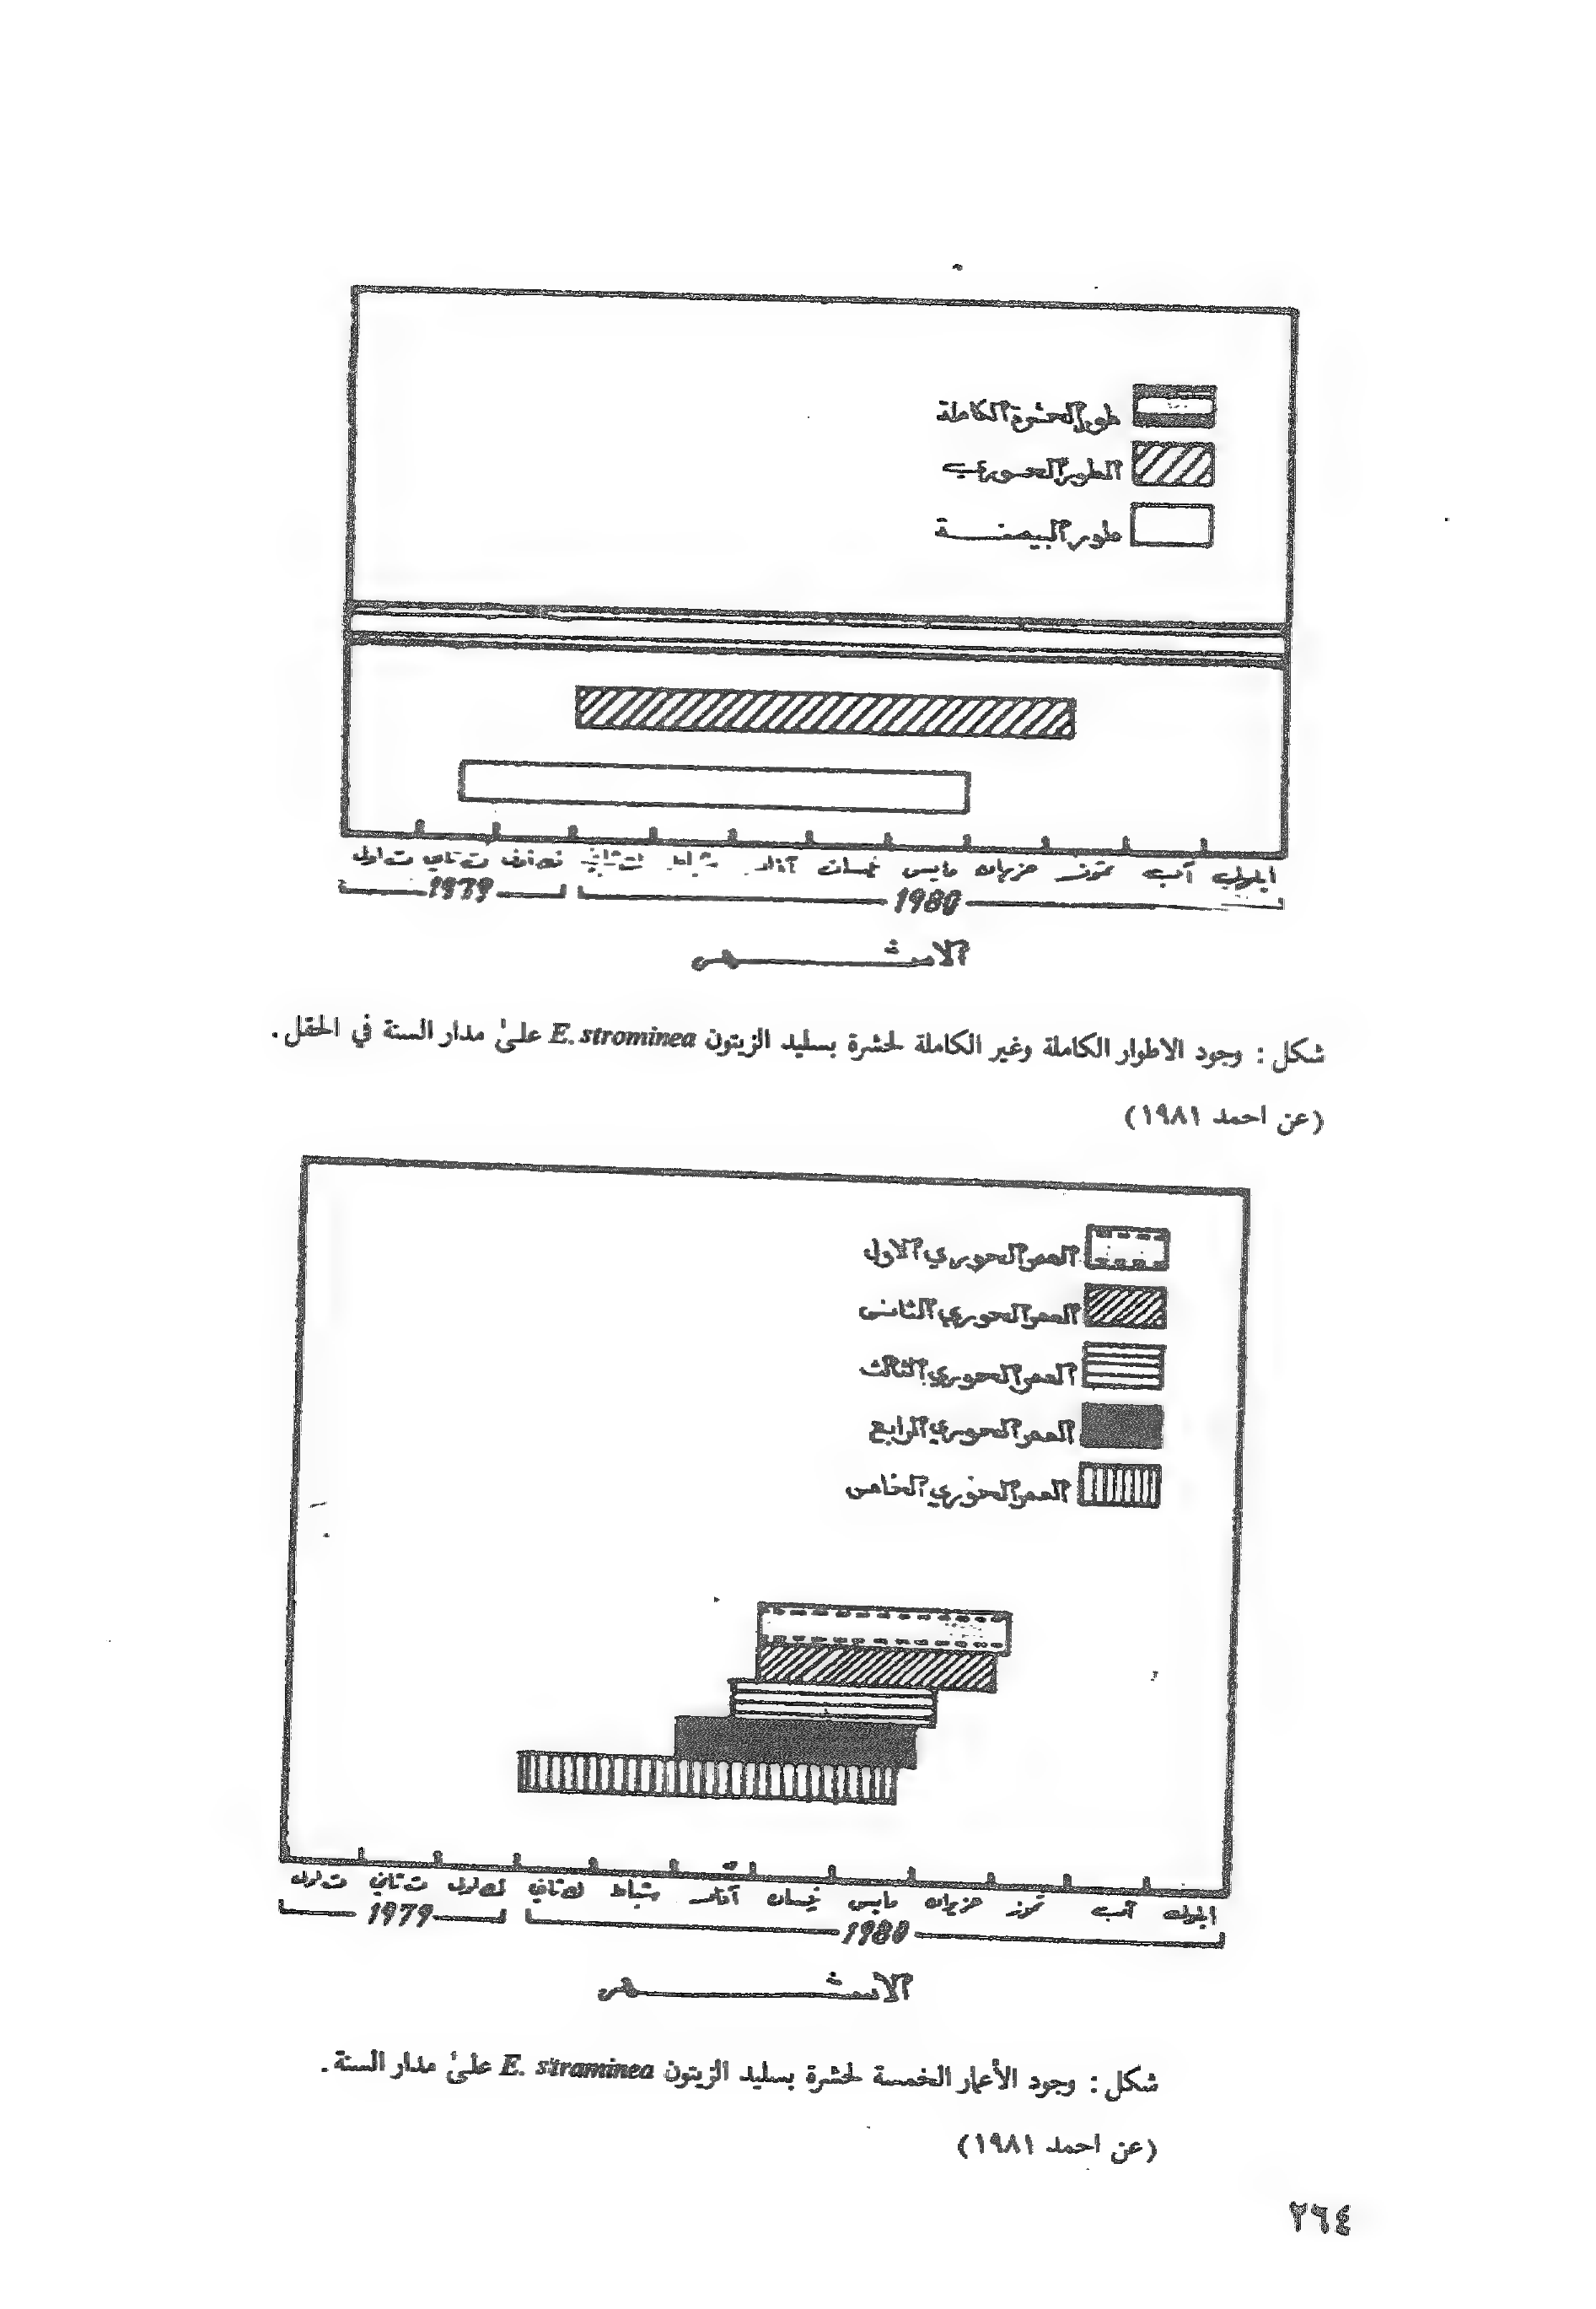 طور الحشرة الكاملة
الطور الحوري
طور البيضة
ت اول ت ثاني ك اول ك ثاني شباط آذار نيسان مايس حزيران تموز آب ايلول
1979 1980
الاشهر
شكل : وجود الاطوار الكاملة وغير الكاملة لحشرة بسليد الزيتون E. strominea على مدار السنة في الحقل .
(عن احمد ١٩٨١)
العمر الحوري الاول
العمر الحوري الثاني
العمر الحوري الثالث
العمر الحوري الرابع
العمر الحوري الخامس
ت اول ت ثاني ك اول ك ثاني شباط آذار نيسان مايس حزيران تموز آب ايلول
1979 1980
الاشهر
شكل : وجود الأعمار الخمسة لحشرة بسليد الزيتون E. straminea على مدار السنة .
(عن احمد ١٩٨١)
٢٦٤